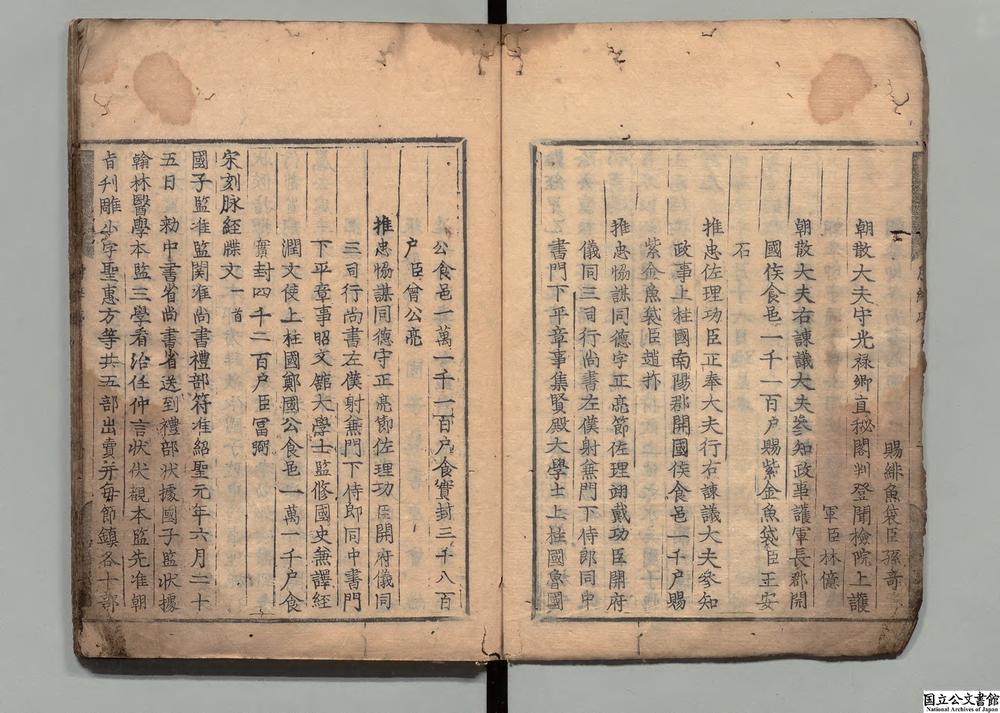 賜緋魚袋臣孫奇
朝散大夫守光祿卿直秘閣判登聞檢院上護
軍臣林億
朝散大夫右諫議大夫參知政事護軍長郡開
國侯食邑一千一百户賜紫金魚袋臣王安
石
推忠佐理功臣正奉大夫行右諫議大夫參知
政事上柱國南陽郡開國侯食邑一千户賜
紫金魚袋臣趙抃
推忠恊謀同德守正亮節佐理翊戴功臣開府
儀同三司行尚書左僕射兼門下侍郎同中
書門下平章事集賢殿大學士上柱國魯國
公食邑一萬一千一百户食實封三千八百
户臣曾公亮
推忠恊謀同德守正亮節佐理功臣開府儀同
三司行尚書左僕射兼門下侍郎同中書門
下平章事昭文館大學士監修國史兼譯經
潤文使上柱國鄭國公食邑一萬一千户食
實封四千二百户臣富弼
宋刻脉經牒文一首
國子監准監関准尚書禮部符准紹聖元年六月二十
五日勑中書省尚書省送到禮部狀據國子監狀據
翰林醫學本監三學看治任仲言狀伏觀本監先准朝
旨刋雕小字聖惠方等共五部出賣并每節鎮各十部
国立公文書館
National Archives of Japan